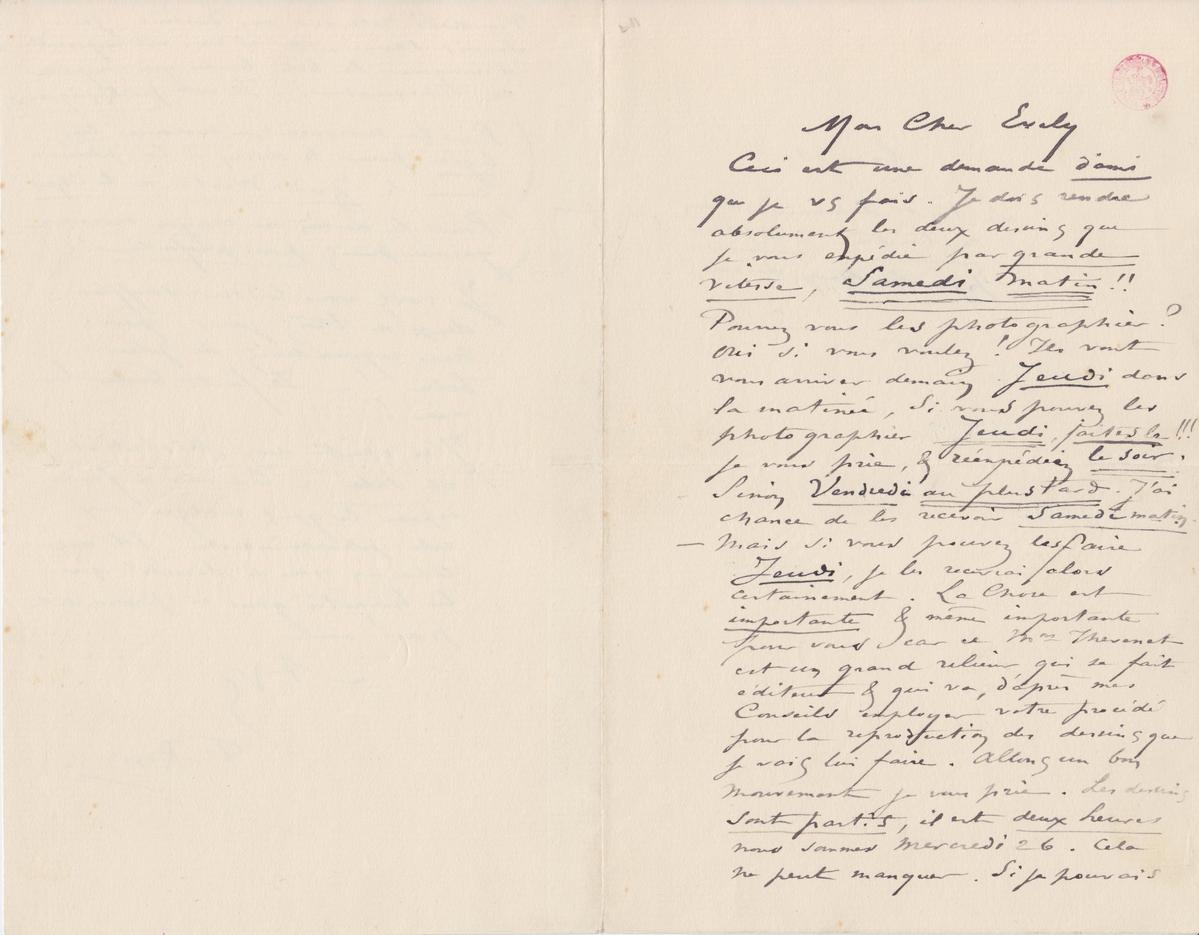 Mon Cher Evely
Ceci est une demande d'ami
que je vs fais. Je dois rendre
absolument les deux dessins que
je vous expédie par grande
vitesse, Samedi matin!!
Pouvez vous les photographier?
Oui si vous voulez! Ils vont
vous arriver demain Jeudi dans
la matinée, Si vous pouvez les
photographier Jeudi, faites le!!!
je vous prie, & réexpédiez le soir.
Sinon Vendredi au plus tard. J'ai
chance de les recevoir Samedi matin.
— Mais si vous pouvez les faire
Jeudi, je les recevrai alors
certainement. La Chose est
importante & même importante
pour vous car ce Mr Thevenet
est un grand relieur qui se fait
éditeur & qui va, d'après mes
Conseils employer votre procédé
pour la reproduction des dessins que
je vais lui faire. Allons un bon
mouvement je vous prie. Les dessins
sont partis, il est deux heures
nous sommes Mercredi 26. Cela
ne peut manquer. Si je pouvais